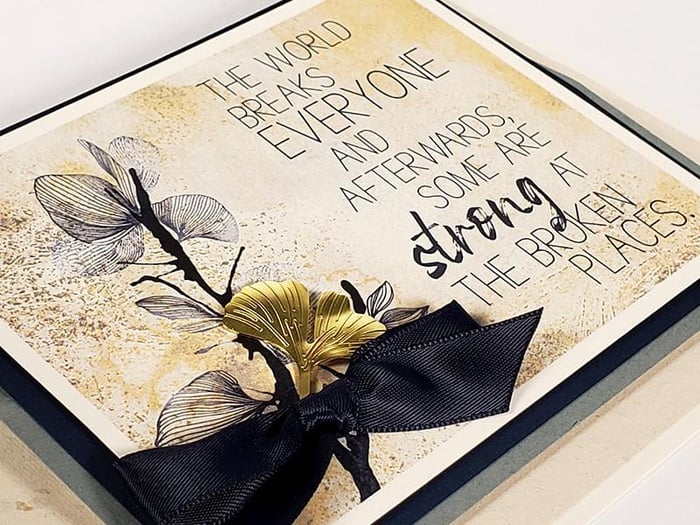 THE WORLD
BREAKS
EVERYONE
AND
AFTERWARDS,
SOME ARE
strong AT
THE BROKEN
PLACES.